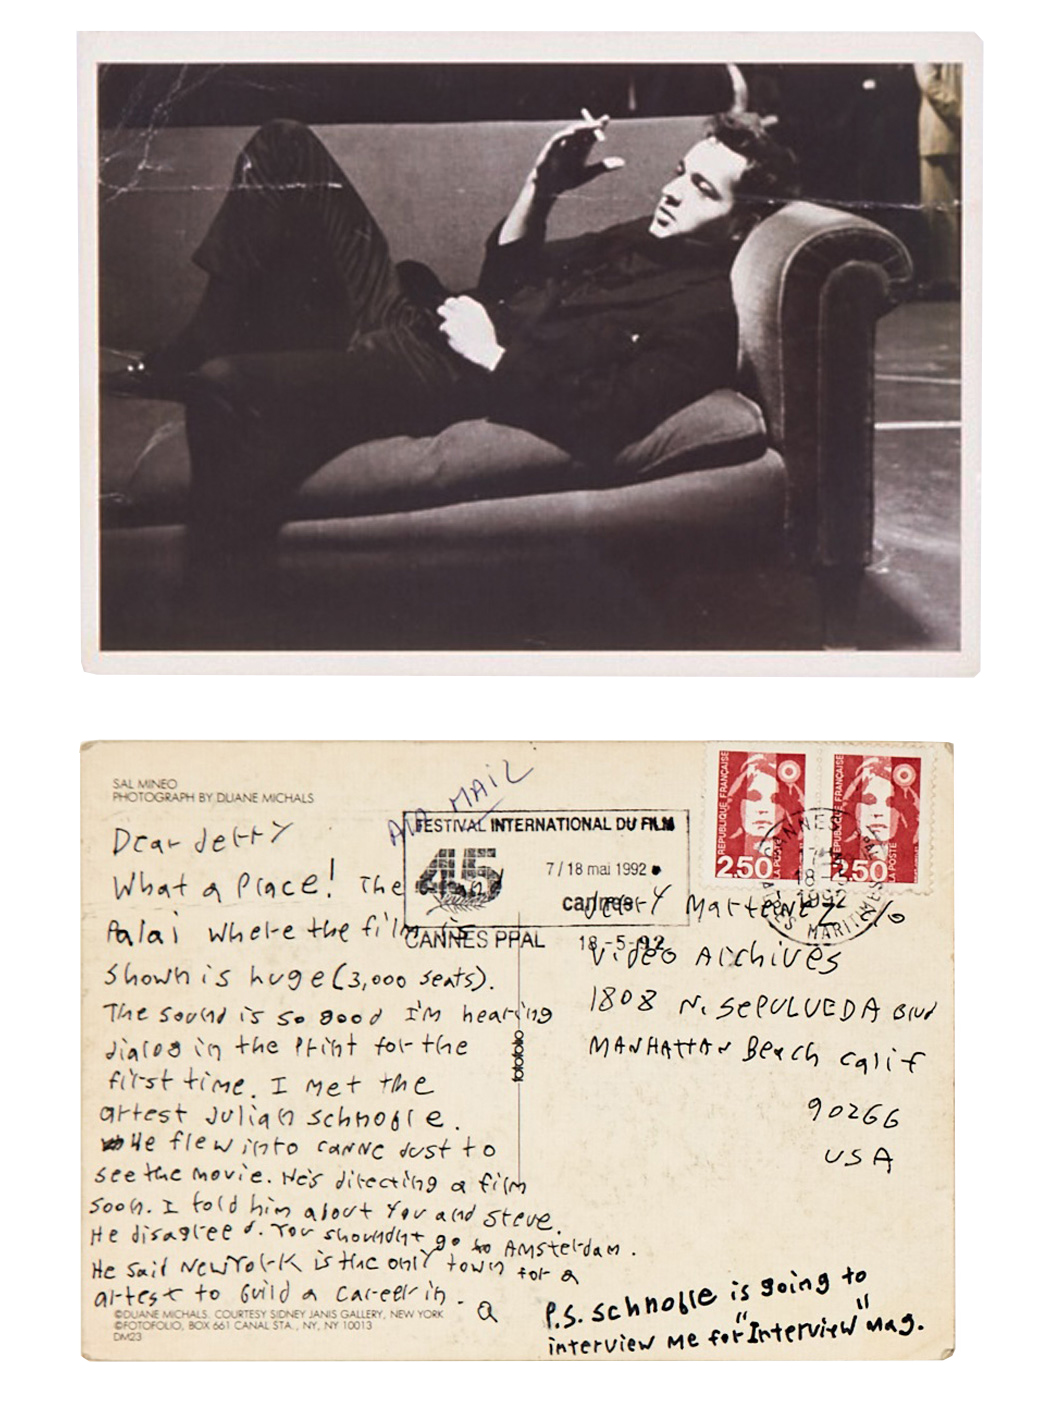 SAL MINEO
PHOTOGRAPH BY DUANE MICHALS
AIR MAIL
FESTIVAL INTERNATIONAL DU FILM
45
7/18 mai 1992
cannes
CANNES PPAL
18-5-92
REPUBLIQUE FRANÇAISE
2.50
LA POSTE
REPUBLIQUE FRANÇAISE
2.50
LA POSTE
CANNES PPAL
18-5
1992
ALPES MARITIMES
Dear Jerry
What a Place! The Grand
Palai where the film is
shown is huge (3,000 seats).
The sound is so good I'm hearing
dialog in the Print for the
first time. I met the
artest Julian Schnoble.
He flew into canne Just to
see the movie. He's directing a film
soon. I told him about You and Steve.
He disagreed. You shoundnt go to Amsterdam.
He said New York is the only town for a
artest to build a career in.
Q
Jerry Martenez c/o
Video Archives
1808 N. SEPULVEDA Blvd
MANHATTAN Beach Calif
90266
USA
P.S. Schnoble is going to
interview me for "Interview" Mag.
fotofolio
©DUANE MICHALS. COURTESY SIDNEY JANIS GALLERY, NEW YORK
©FOTOFOLIO, BOX 661 CANAL STA., NY, NY 10013
DM23